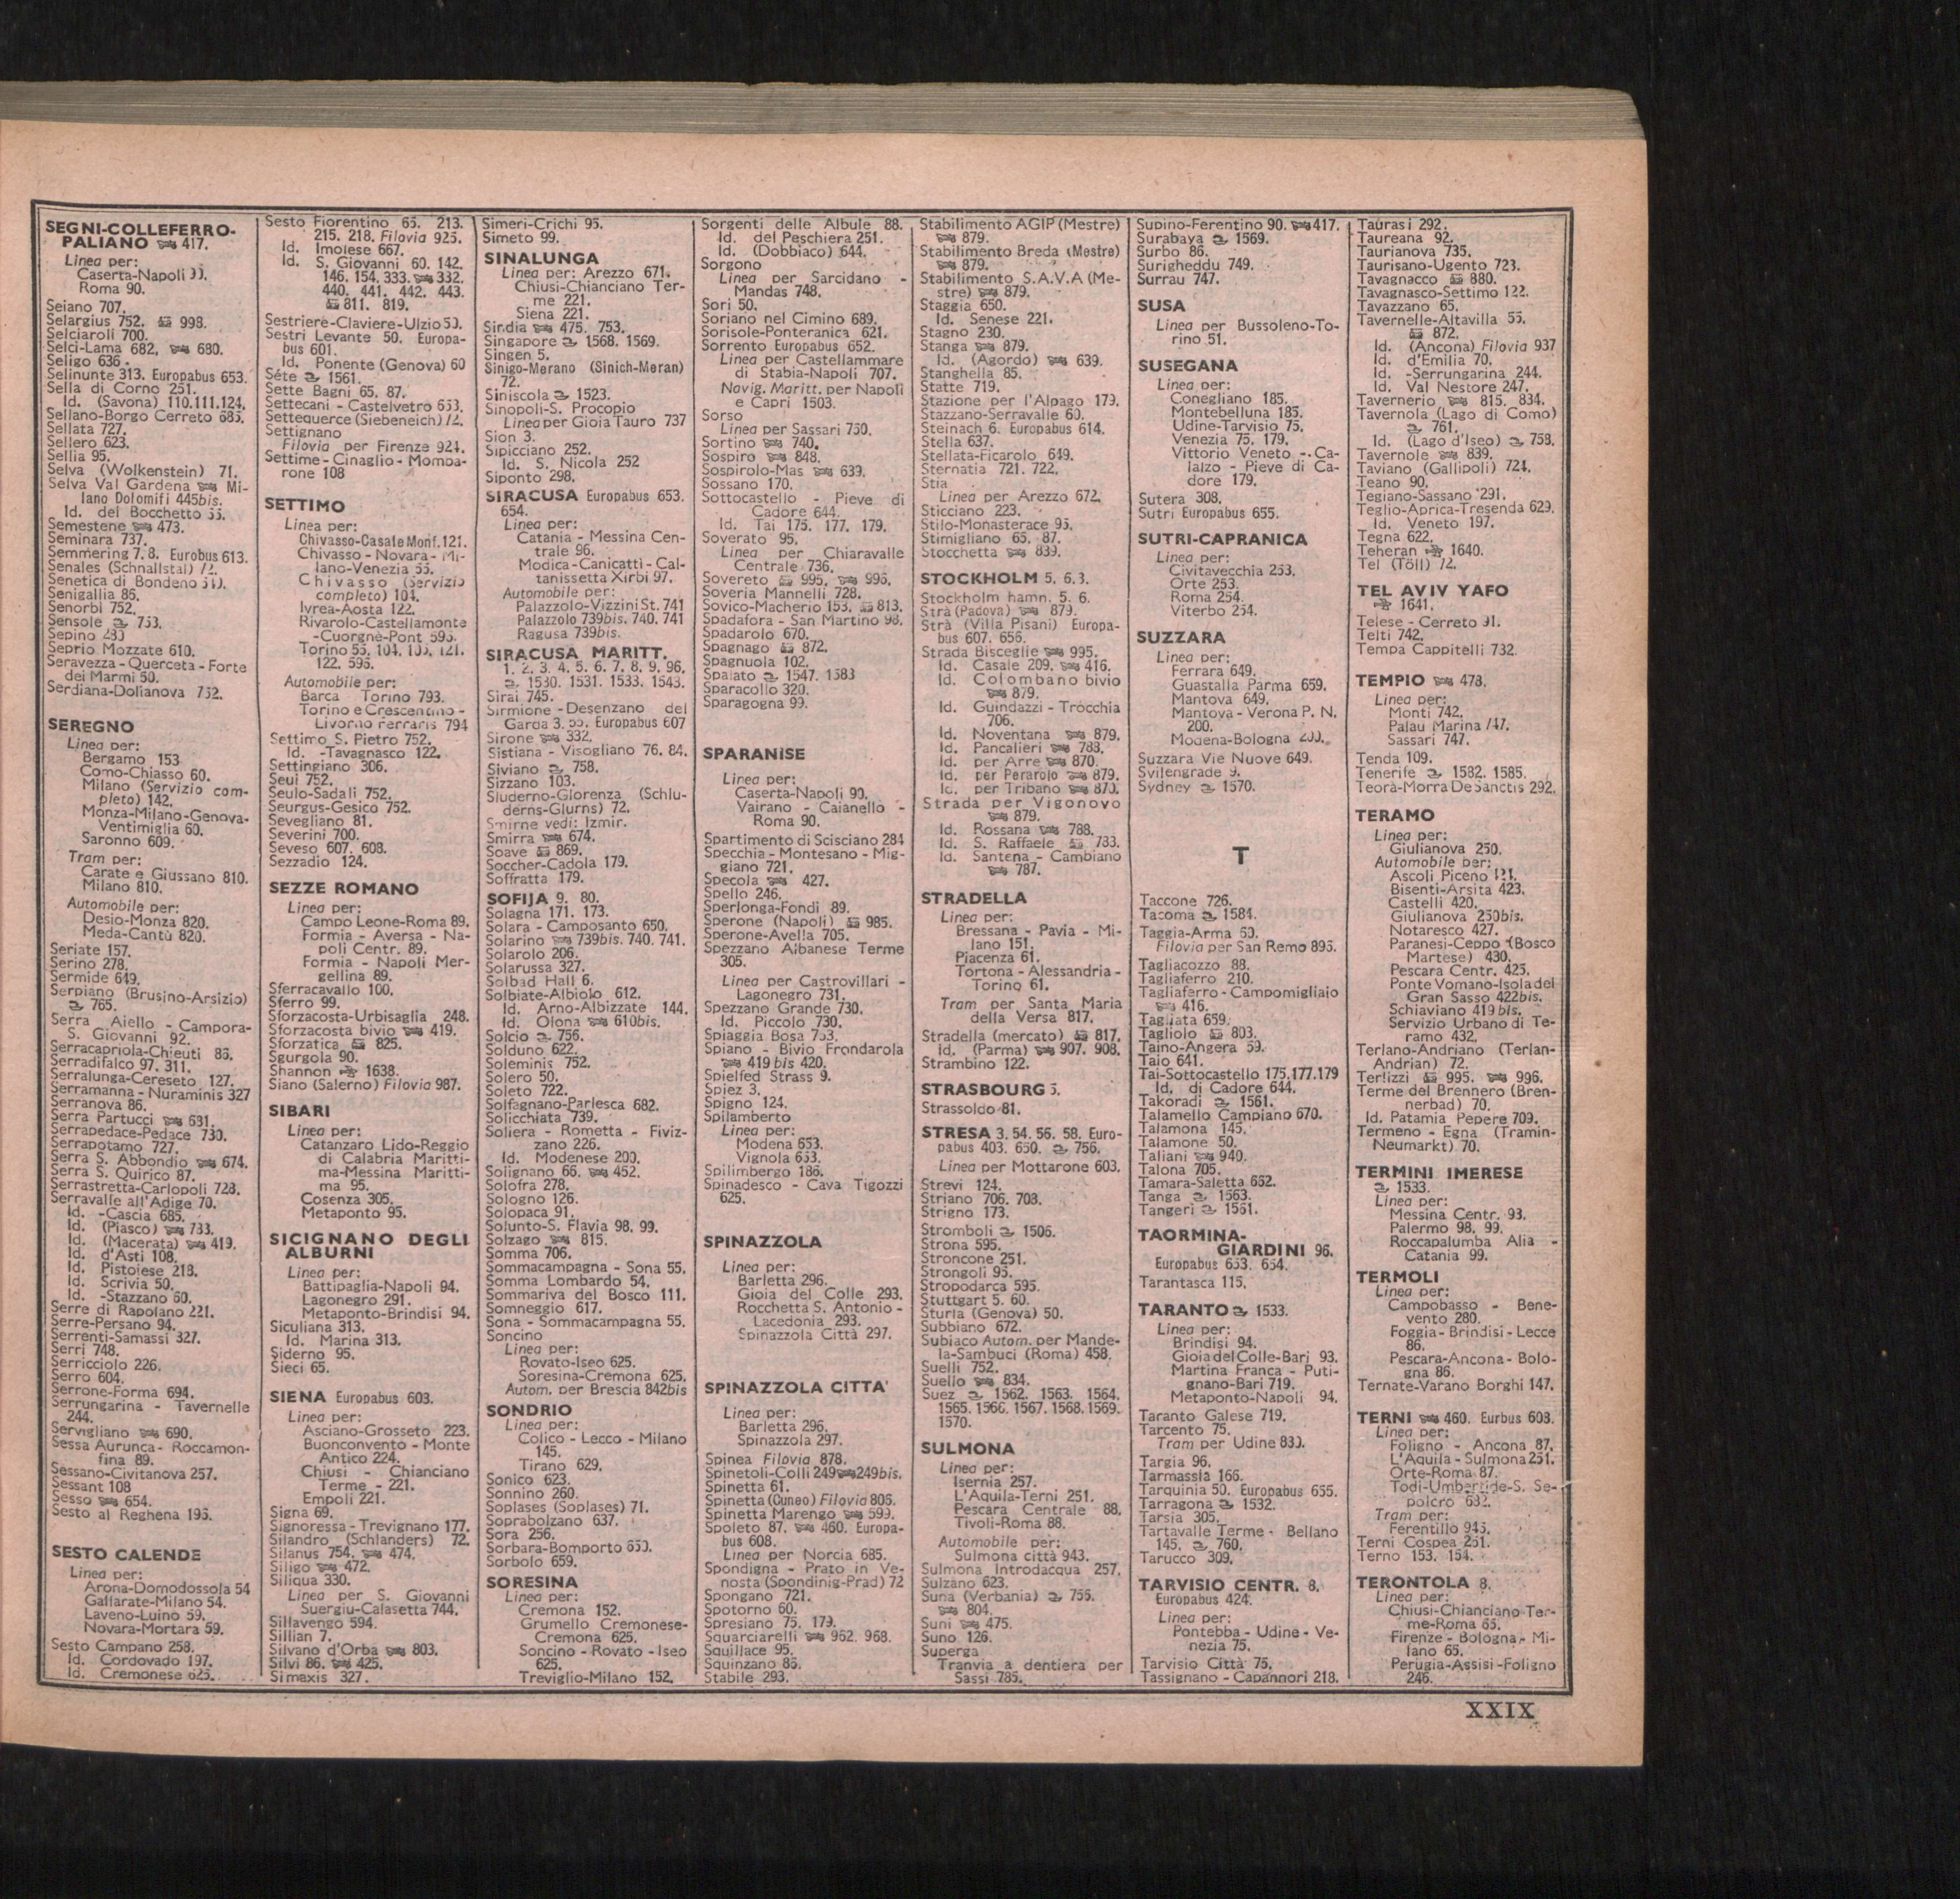 SEGNI-COLLEFERRO-
PALIANO 417.
Linea per:
Caserta-Napoli
Roma 90.
Seiano 707.
Selargius 752. 998.
Selciaroli 700.
Selci-Lama 682. 680.
Seligo 636.
Selinunte 313. Europabus 653.
Sella di Corno 251.
Id. (Savona) 110.111.124.
Sellano-Borgo Cerreto 685.
Sellata 727.
Sellero 623.
Sellia 95.
Selva (Wolkenstein) 71.
Selva Val Gardena Mi-
lano Dolomiti 445bis.
Id. del Bocchetto 55.
Semestene 473.
Seminara 737.
Semmering 7. 8. Eurobus 613.
Senales (Schnallstal) 72.
Senetica di Bondeno
Senigallia 86.
Senorbì 752.
Sensole 753.
Sepino 280
Seprio Mozzate 610.
Seravezza - Querceta - Forte
dei Marmi 50.
Serdiana-Dolianova 752.
SEREGNO
Linea per:
Bergamo 153
Como-Chiasso 60.
Milano (Servizio com-
pleto) 142.
Monza-Milano-Genova-
Ventimiglia 60.
Saronno 609.
Tram per:
Carate e Giussano 810.
Milano 810.
Automobile per:
Desio-Monza 820.
Meda-Cantù 820.
Seriate 157.
Serino 278.
Sermide 649.
Serpiano (Brusino-Arsizio)
765.
Serra Aiello - Campora-
S. Giovanni 92.
Serracapriola-Chieuti 86.
Serradifalco 97. 311.
Serralunga-Cereseto 127.
Serramanna - Nuraminis 327
Serranova 86.
Serra Partucci 681.
Serrapedace-Pedace 730.
Serrapotamo 727.
Serra S. Abbondio 674.
Serra S. Quirico 87.
Serrastretta-Carlopoli 728.
Serravalle all'Adige 70.
Id. -Cascia 685.
Id. (Piasco) 783.
Id. (Macerata) 419.
Id. d'Asti 108.
Id. Pistoiese 218.
Id. Scrivia 50.
Id. -Stazzano 60.
Serre di Rapolano 221.
Serre-Persano 94.
Serrenti-Samassi 327.
Serri 748.
Serricciolo 226.
Serro 604.
Serrone-Forma 694.
Serrungarina - Tavernelle
244.
Servigliano 690.
Sessa Aurunca- Roccamon-
fina 89.
Sessano-Civitanova 257.
Sessant 108
Sesso 654.
Sesto al Reghena 195.
SESTO CALENDE
Linea per:
Arona-Domodossola 54
Gallarate-Milano 54.
Laveno-Luino 59.
Novara-Mortara 59.
Sesto Campano 258.
Id. Cordovado 197.
Id. Cremonese 625.
Sesto Fiorentino 65. 213.
215. 218. Filovia 925.
Id. Imolese 667.
Id. S. Giovanni 60. 142.
146. 154. 333. 332.
440. 441. 442. 443.
811. 819.
Sestriere-Claviere-Ulzio 50.
Sestri Levante 50. Europa-
bus 601.
Id. Ponente (Genova) 60
Séte 1561.
Sette Bagni 65. 87.
Settecani - Castelvetro 653.
Settequerce (Siebeneich) 72.
Settignano
Filovia per Firenze 924.
Settime - Cinaglio - Momba-
rone 108
SETTIMO
Linea per:
Chivasso-Casale Monf. 121.
Chivasso - Novara - Mi-
lano-Venezia 55.
Chivasso (Servizio
completo) 104.
Ivrea-Aosta 122.
Rivarolo-Castellamonte
-Cuorgnè-Pont 595.
Torino 55. 104. 105. 121.
122. 595.
Automobile per:
Barca Torino 793.
Torino e Crescentino -
Livorno Ferraris 794
Settimo S. Pietro 752.
Id. -Tavagnasco 122.
Settingiano 306.
Seui 752.
Seulo-Sadali 752.
Seurgus-Gesico 752.
Sevegliano 81.
Severini 700.
Seveso 607. 608.
Sezzadio 124.
SEZZE ROMANO
Linea per:
Campo Leone-Roma 89.
Formia - Aversa - Na-
poli Centr. 89.
Formia - Napoli Mer-
gellina 89.
Sferracavallo 100.
Sferro 99.
Sforzacosta-Urbisaglia 248.
Sforzacosta bivio 419.
Sforzatica 825.
Sgurgola 90.
Shannon 1638.
Siano (Salerno) Filovia 987.
SIBARI
Linea per:
Catanzaro Lido-Reggio
di Calabria Maritti-
ma-Messina Maritti-
ma 95.
Cosenza 305.
Metaponto 95.
SICIGNANO DEGLI
ALBURNI
Linea per:
Battipaglia-Napoli 94.
Lagonegro 291.
Metaponto-Brindisi 94.
Siculiana 313.
Id. Marina 313.
Siderno 95.
Sieci 65.
SIENA Europabus 603.
Linea per:
Asciano-Grosseto 223.
Buonconvento - Monte
Antico 224.
Chiusi - Chianciano
Terme - 221.
Empoli 221.
Signa 69.
Signoressa - Trevignano 177.
Silandro (Schlanders) 72.
Silanus 754. 474.
Siligo 472.
Siliqua 330.
Linea per S. Giovanni
Suergiu-Calasetta 744.
Sillavengo 594.
Sillian 7.
Silvano d'Orba 803.
Silvi 86. 425.
Simaxis 327.
Simeri-Crichi 95.
Simeto 99.
SINALUNGA
Linea per: Arezzo 671.
Chiusi-Chianciano Ter-
me 221.
Siena 221.
Sindia 475. 753.
Singapore 1568. 1569.
Singen 5.
Sinigo-Merano (Sinich-Meran)
72.
Siniscola 1523.
Sinopoli-S. Procopio
Linea per Gioia Tauro 737
Sion 3.
Sipicciano 252.
Id. S. Nicola 252
Siponto 298.
SIRACUSA Europabus 653.
654.
Linea per:
Catania - Messina Cen-
trale 96.
Modica-Canicattì - Cal-
tanissetta Xirbi 97.
Automobile per:
Palazzolo-Vizzini St. 741
Palazzolo 739bis. 740. 741
Ragusa 739bis.
SIRACUSA MARITT.
1. 2. 3. 4. 5. 6. 7. 8. 9. 96.
1530. 1531. 1533. 1543.
Sirai 745.
Sirmione - Desenzano del
Garda 3. 55. Europabus 607
Sirone 332.
Sistiana - Visogliano 76. 84.
Siviano 758.
Sizzano 103.
Sluderno-Glorenza (Schlu-
derns-Glurns) 72.
Smirne vedi: Izmir.
Smirra 674.
Soave 869.
Soccher-Cadola 179.
Soffratta 179.
SOFIJA 9. 80.
Solagna 171. 173.
Solara - Camposanto 650.
Solarino 739bis. 740. 741.
Solarolo 206.
Solarussa 327.
Solbad Hall 6.
Solbiate-Albiolo 612.
Id. Arno-Albizzate 144.
Id. Olona 610bis.
Solcio 756.
Solduno 622.
Soleminis 752.
Solero 50.
Soleto 722.
Solfagnano-Parlesca 682.
Solicchiata 739.
Soliera - Rometta - Fiviz-
zano 226.
Id. Modenese 200.
Solignano 66. 452.
Solofra 278.
Sologno 126.
Solopaca 91.
Solunto-S. Flavia 98. 99.
Solzago 815.
Somma 706.
Sommacampagna - Sona 55.
Somma Lombardo 54.
Sommariva del Bosco 111.
Somneggio 617.
Sona - Sommacampagna 55.
Soncino
Linea per:
Rovato-Iseo 625.
Soresina-Cremona 625.
Autom. per Brescia 842bis
SONDRIO
Linea per:
Colico - Lecco - Milano
145.
Tirano 629.
Sonico 623.
Sonnino 260.
Soplases (Soplases) 71.
Soprabolzano 637.
Sora 256.
Sorbara-Bomporto 650.
Sorbolo 659.
SORESINA
Linea per:
Cremona 152.
Grumello Cremonese-
Cremona 625.
Soncino - Rovato - Iseo
625.
Treviglio-Milano 152.
Sorgenti delle Albule 88.
Id. del Peschiera 251.
Id. (Dobbiaco) 644.
Sorgono
Linea per Sarcidano -
Mandas 748.
Sori 50.
Soriano nel Cimino 689.
Sorisole-Ponteranica 621.
Sorrento Europabus 652.
Linea per Castellammare
di Stabia-Napoli 707.
Navig. Maritt. per Napoli
e Capri 1503.
Sorso
Linea per Sassari 750.
Sortino 740.
Sospiro 848.
Sospirolo-Mas 639.
Sossano 170.
Sottocastello - Pieve di
Cadore 644.
Id. Tai 175. 177. 179.
Soverato 95.
Linea per Chiaravalle
Centrale 736.
Sovereto 995. 996.
Soveria Mannelli 728.
Sovico-Macherio 153. 813.
Spadafora - San Martino 98.
Spadarolo 670.
Spagnago 872.
Spagnuola 102.
Spalato 1547. 1583
Sparacollo 320.
Sparagogna 99.
SPARANISE
Linea per:
Caserta-Napoli 90.
Vairano - Caianello -
Roma 90.
Spartimento di Scisciano 284
Specchia - Montesano - Mig-
giano 721.
Specola 427.
Spello 246.
Sperlonga-Fondi 89.
Sperone (Napoli) 985.
Sperone-Avella 705.
Spezzano Albanese Terme
305.
Linea per Castrovillari -
Lagonegro 731.
Spezzano Grande 730.
Id. Piccolo 730.
Spiaggia Bosa 753.
Spiano - Bivio Frondarola
419 bis 420.
Spielfed Strass 9.
Spiez 3.
Spigno 124.
Spilamberto
Linea per:
Modena 653.
Vignola 653.
Spilimbergo 186.
Spinadesco - Cava Tigozzi
625.
SPINAZZOLA
Linea per:
Barletta 296.
Gioia del Colle 293.
Rocchetta S. Antonio -
Lacedonia 293.
Spinazzola Città 297.
SPINAZZOLA CITTA'
Linea per:
Barletta 296.
Spinazzola 297.
Spinea Filovia 878.
Spinetoli-Colli 249 249bis.
Spinetta 61.
Spinetta (Cuneo) Filovia 806.
Spinetta Marengo 599.
Spoleto 87. 460. Europa-
bus 608.
Linea per Norcia 685.
Spondigna - Prato in Ve-
nosta (Spondinig-Prad) 72
Spongano 721.
Spotorno 60.
Spresiano 75. 179.
Squarciarelli 962. 968.
Squillace 95.
Squinzano 86.
Stabile 293.
Stabilimento AGIP (Mestre)
879.
Stabilimento Breda (Mestre)
879.
Stabilimento S.A.V.A (Me-
stre) 879.
Staggia 650.
Id. Senese 221.
Stagno 230.
Stanga 879.
Id. (Agordo) 639.
Stanghella 85.
Statte 719.
Stazione per l'Alpago 179.
Stazzano-Serravalle 60.
Steinach 6. Europabus 614.
Stella 637.
Stellata-Ficarolo 649.
Sternatia 721. 722.
Stia
Linea per Arezzo 672.
Sticciano 223.
Stilo-Monasterace 95.
Stimigliano 65. 87.
Stocchetta 839.
STOCKHOLM 5. 6.3.
Stockholm hamn. 5. 6.
Strà (Padova) 879.
Strà (Villa Pisani) Europa-
bus 607. 656.
Strada Bisceglie 995.
Id. Casale 209. 416.
Id. Colombano bivio
879.
Id. Guindazzi - Trocchia
706.
Id. Noventana 879.
Id. Pancalieri 788.
Id. per Arre 870.
Id. per Perarolo 879.
Id. per Tribano 870.
Strada per Vigonovo
879.
Id. Rossana 788.
Id. S. Raffaele 783.
Id. Santena - Cambiano
787.
STRADELLA
Linea per:
Bressana - Pavia - Mi-
lano 151.
Piacenza 61.
Tortona - Alessandria -
Torino 61.
Tram per Santa Maria
della Versa 817.
Stradella (mercato) 817.
Id. (Parma) 907. 908.
Strambino 122.
STRASBOURG 5.
Strassoldo 81.
STRESA 3. 54. 56. 58. Euro-
pabus 403. 650. 756.
Linea per Mottarone 603.
Strevi 124.
Striano 706. 708.
Strigno 173.
Stromboli 1506.
Strona 595.
Stroncone 251.
Strongoli 95.
Stropodarca 595.
Stuttgart 5. 60.
Sturla (Genova) 50.
Subbiano 672.
Subiaco Autom. per Mande-
la-Sambuci (Roma) 458.
Suelli 752.
Suello 834.
Suez 1562. 1563. 1564.
1565. 1566. 1567. 1568. 1569.
1570.
SULMONA
Linea per:
Isernia 257.
L'Aquila-Terni 251.
Pescara Centrale 88.
Tivoli-Roma 88.
Automobile per:
Sulmona città 943.
Sulmona Introdacqua 257.
Sulzano 623.
Suna (Verbania) 756.
804.
Suni 475.
Suno 126.
Superga
Tranvia a dentiera per
Sassi 785.
Supino-Ferentino 90. 417.
Surabaya 1569.
Surbo 86.
Surigheddu 749.
Surrau 747.
SUSA
Linea per Bussoleno-To-
rino 51.
SUSEGANA
Linea per:
Conegliano 185.
Montebelluna 185.
Udine-Tarvisio 75.
Venezia 75. 179.
Vittorio Veneto - Ca-
lalzo - Pieve di Ca-
dore 179.
Sutera 308.
Sutri Europabus 655.
SUTRI-CAPRANICA
Linea per:
Civitavecchia 253.
Orte 253.
Roma 254.
Viterbo 254.
SUZZARA
Linea per:
Ferrara 649.
Guastalla Parma 659.
Mantova 649.
Mantova - Verona P. N.
200.
Modena-Bologna 200.
Suzzara Vie Nuove 649.
Svilengrade 9.
Sydney 1570.
T
Taccone 726.
Tacoma 1584.
Taggia-Arma 60.
Filovia per San Remo 895.
Tagliacozzo 88.
Tagliaferro 210.
Tagliaferro - Campomigliaio
416.
Tagliata 659.
Tagliolo 803.
Taino-Angera 59.
Taio 641.
Tai-Sottocastello 175.177.179
Id. di Cadore 644.
Takoradi 1561.
Talamello Campiano 670.
Talamona 145.
Talamone 50.
Taliani 940.
Talona 705.
Tamara-Saletta 662.
Tanga 1563.
Tangeri 1561.
TAORMINA-
GIARDINI 96.
Europabus 653. 654.
Tarantasca 115.
TARANTO 1533.
Linea per:
Brindisi 94.
Gioia del Colle-Bari 93.
Martina Franca - Puti-
gnano-Bari 719.
Metaponto-Napoli 94.
Taranto Galese 719.
Tarcento 75.
Tram per Udine 880.
Targia 96.
Tarmassia 166.
Tarquinia 50. Europabus 655.
Tarragona 1532.
Tarsia 305.
Tartavalle Terme - Bellano
145. 760.
Tarucco 309.
TARVISIO CENTR. 8.
Europabus 424.
Linea per:
Pontebba - Udine - Ve-
nezia 75.
Tarvisio Città 75.
Tassignano - Capannori 218.
Taurasi 292.
Taureana 92.
Taurianova 735.
Taurisano-Ugento 723.
Tavagnacco 880.
Tavagnasco-Settimo 122.
Tavazzano 65.
Tavernelle-Altavilla 55.
872.
Id. (Ancona) Filovia 937
Id. d'Emilia 70.
Id. -Serrungarina 244.
Id. Val Nestore 247.
Tavernerio 815. 834.
Tavernola (Lago di Como)
761.
Id. (Lago d'Iseo) 758.
Tavernole 839.
Taviano (Gallipoli) 724.
Teano 90.
Tegiano-Sassano 291.
Teglio-Aprica-Tresenda 629.
Id. Veneto 197.
Tegna 622.
Teheran 1640.
Tel (Töll) 72.
TEL AVIV YAFO
1641.
Telese - Cerreto 91.
Telti 742.
Tempa Cappitelli 732.
TEMPIO 478.
Linea per:
Monti 742.
Palau Marina 747.
Sassari 747.
Tenda 109.
Tenerife 1582. 1585.
Teora-Morra De Sanctis 292.
TERAMO
Linea per:
Giulianova 250.
Automobile per:
Ascoli Piceno
Bisenti-Arsita 423.
Castelli 420.
Giulianova 250bis.
Notaresco 427.
Paranesi-Ceppo (Bosco
Martese) 430.
Pescara Centr. 425.
Ponte Vomano-Isola del
Gran Sasso 422bis.
Schiaviano 419bis.
Servizio Urbano di Te-
ramo 432.
Terlano-Andriano (Terlan-
Andrian) 72.
Terlizzi 995. 996.
Terme del Brennero (Bren-
nerbad) 70.
Id. Patamia Pepere 709.
Termeno - Egna (Tramin-
Neumarkt) 70.
TERMINI IMERESE
1533.
Linea per:
Messina Centr. 98.
Palermo 98. 99.
Roccapalumba Alia -
Catania 99.
TERMOLI
Linea per:
Campobasso - Bene-
vento 280.
Foggia - Brindisi - Lecce
86.
Pescara-Ancona - Bolo-
gna 86.
Ternate-Varano Borghi 147.
TERNI 460. Eurbus 608.
Linea per:
Foligno - Ancona 87.
L'Aquila - Sulmona 251.
Orte-Roma 87.
Todi-Umbertide-S. Se-
polcro 682.
Tram per:
Ferentillo 945.
Terni Cospea 251.
Terno 153. 154.
TERONTOLA 8.
Linea per:
Chiusi-Chianciano Ter-
me-Roma 65.
Firenze - Bologna - Mi-
lano 65.
Perugia-Assisi-Foligno
246.
XXIX